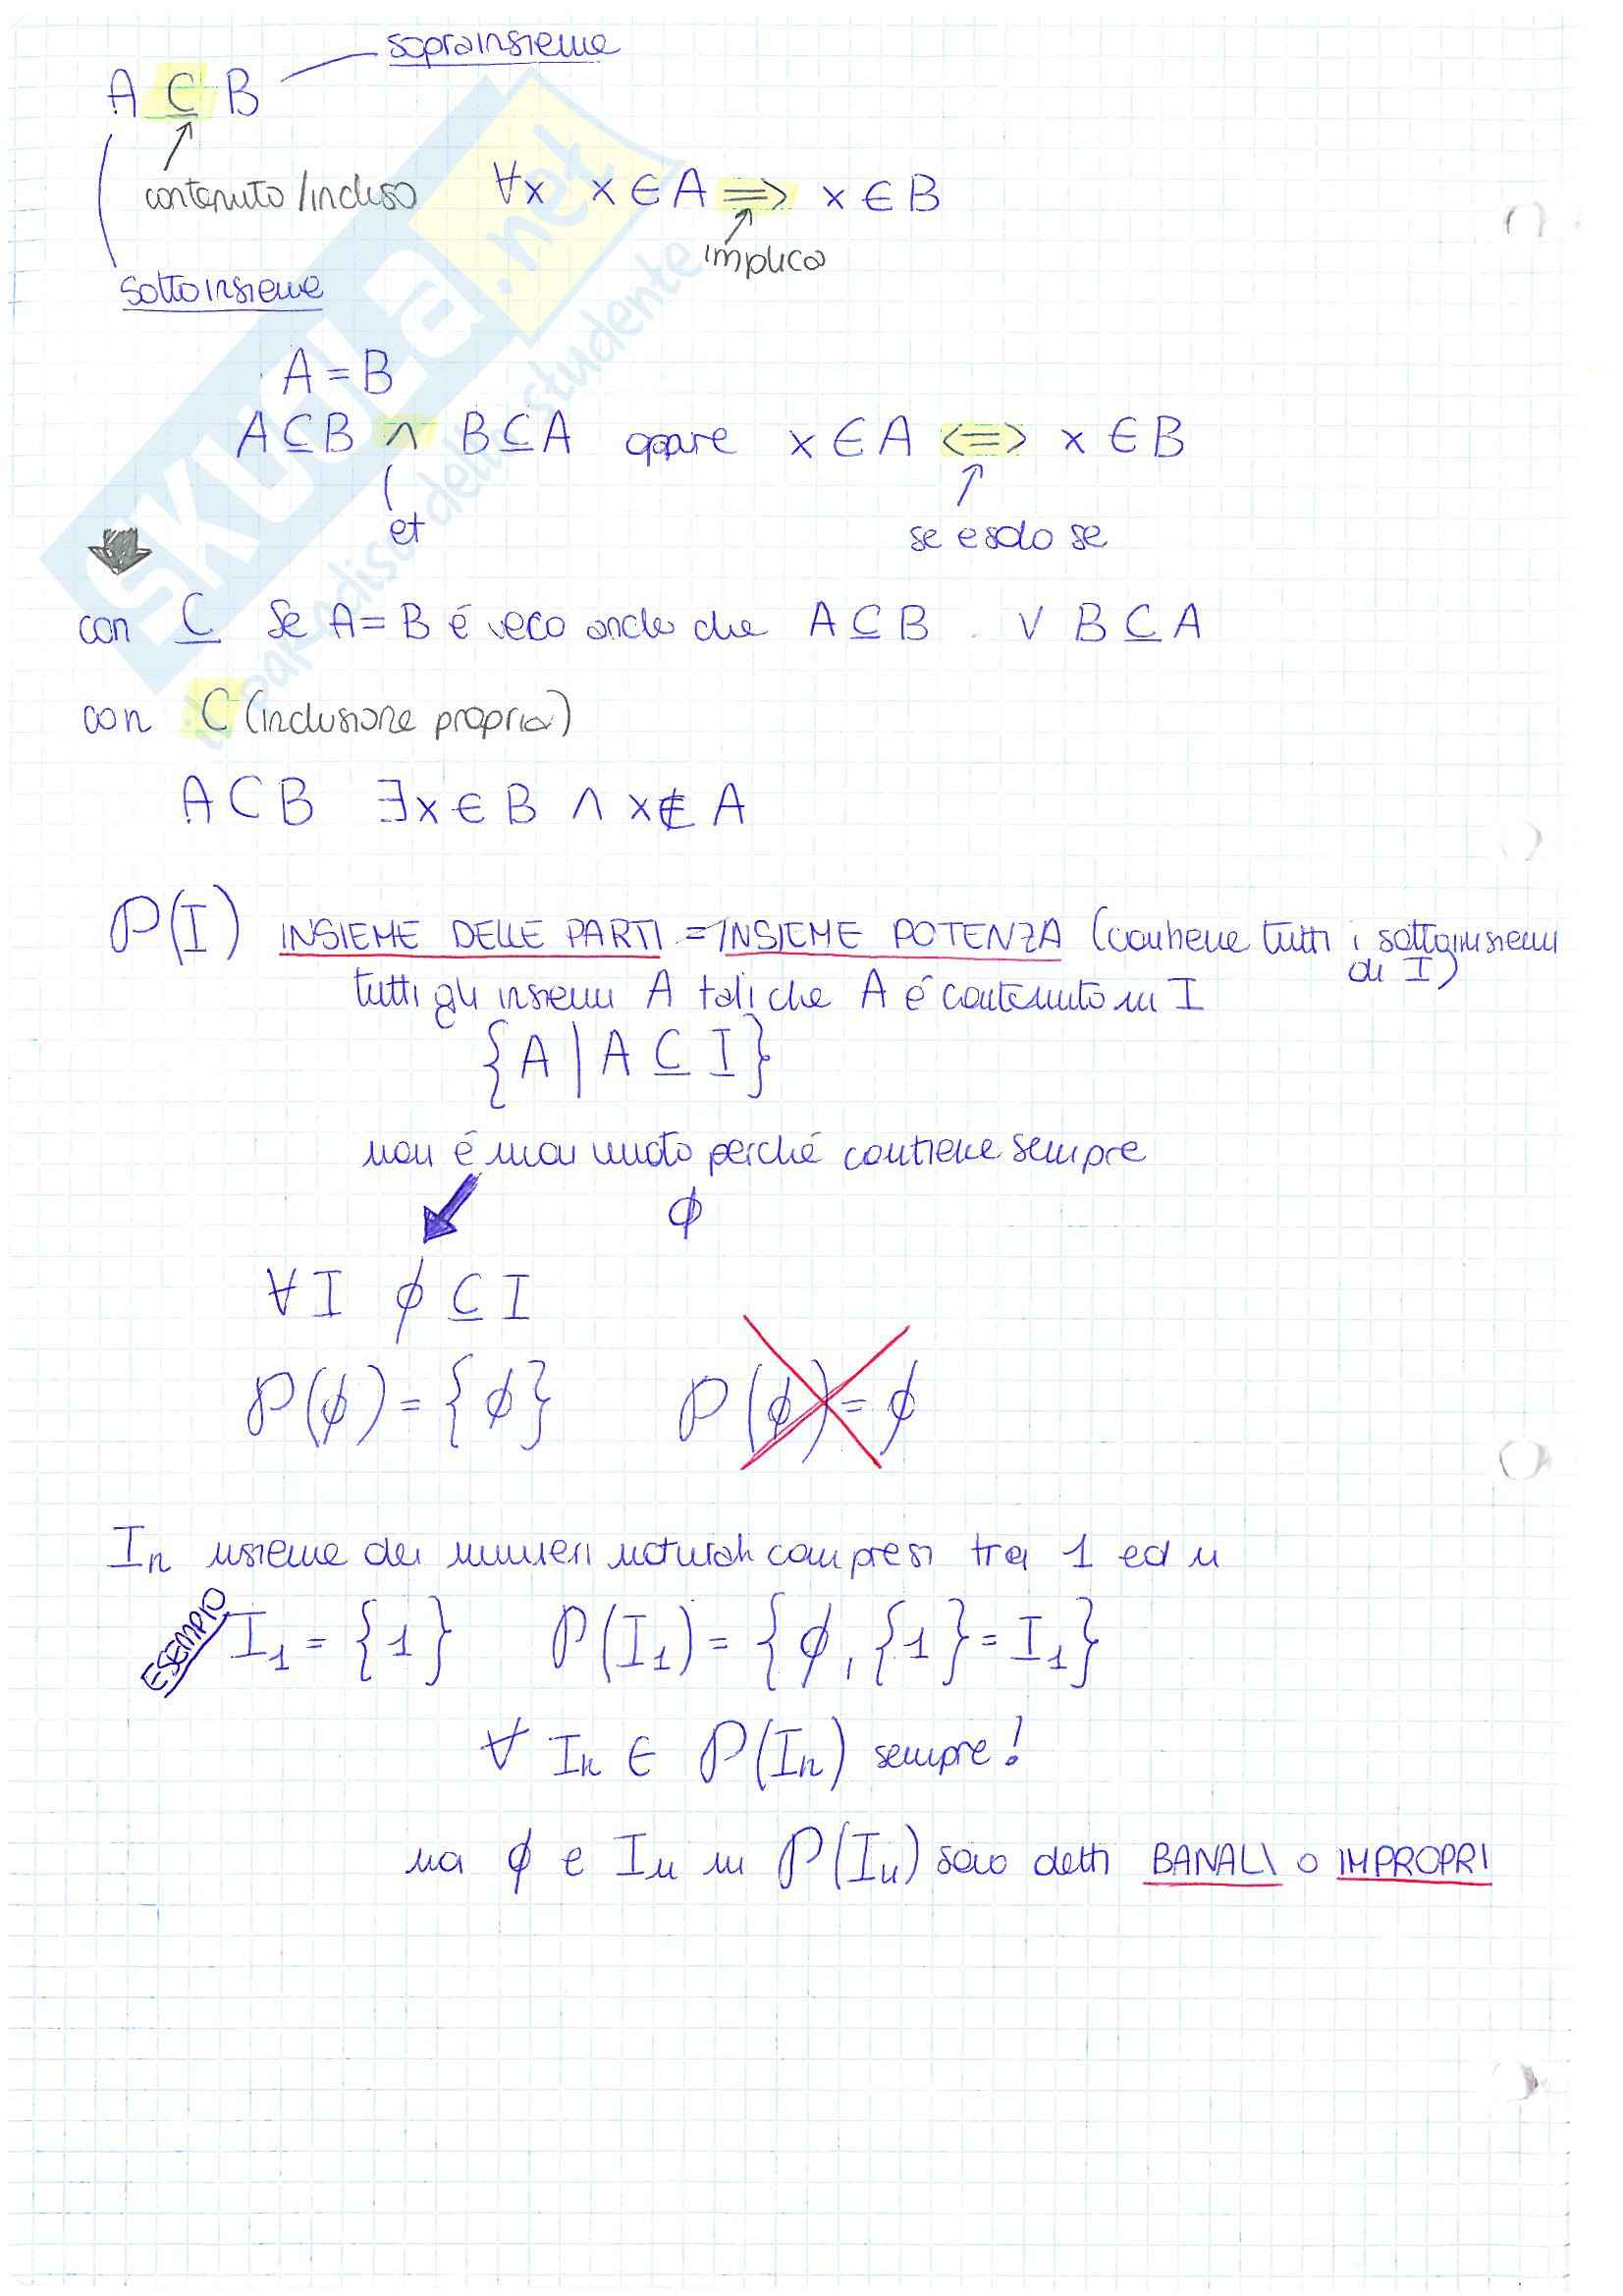 soprainsieme
A ⊆ B
contenuto/incluso ∀x x∈A ⟹ x∈B
implica
sottoinsieme
A=B
A⊆B ∧ B⊆A oppure x∈A <=> x∈B
et
se e solo se
con ⊆ Se A=B é vero anche che A⊆B . ∨ B⊆A
con ⊂ (inclusione propria)
A⊂B ∃x∈B ∧ x∉A
P(I) INSIEME DELLE PARTI = INSIEME POTENZA (contiene tutti i sottoinsiemi
di I)
tutti gli insiemi A tali che A é contenuto in I
{A|A⊆I}
non é mai vuoto perché contiene sempre
ϕ
∀I ϕ⊆I
P(ϕ)={ϕ} P(ϕ)=ϕ
In insieme dei numeri naturali compresi tra 1 ed n
ESEMPIO I₁={1} P(I₁)={ϕ,{1}=I₁}
∀ In ∈ P(In) sempre!
ma ϕ e In in P(In) sono detti BANALI o IMPROPRI
SKUOLA.net
il paradiso dello studente